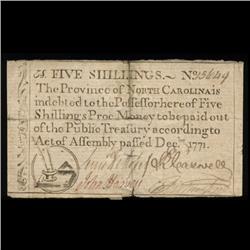 5s. FIVE SHILLINGS. No 15649
The Province of NORTH CAROLINA is
indebted to the Possessor hereof Five
Shillings Proc. Money to be paid out
of the Public Treasury according to
Act of Assembly passed Decr. 1771.
John Harvey